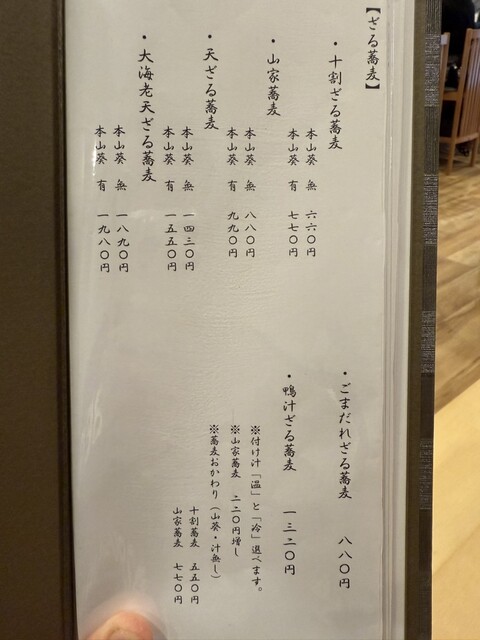 【ざる蕎麦】
・十割ざる蕎麦
本山葵 無 六六〇円
本山葵 有 七七〇円
・山家蕎麦
本山葵 無 八八〇円
本山葵 有 九九〇円
・天ざる蕎麦
本山葵 無 一四三〇円
本山葵 有 一五五〇円
・大海老天ざる蕎麦
本山葵 無 一八九〇円
本山葵 有 一九八〇円
・ごまだれざる蕎麦 八八〇円
・鴨汁ざる蕎麦 一三二〇円
※付け汁「温」と「冷」選べます。
※山家蕎麦 二二〇円増し
※蕎麦おかわり(山葵・汁無し)
十割蕎麦 五五〇円
山家蕎麦 七七〇円